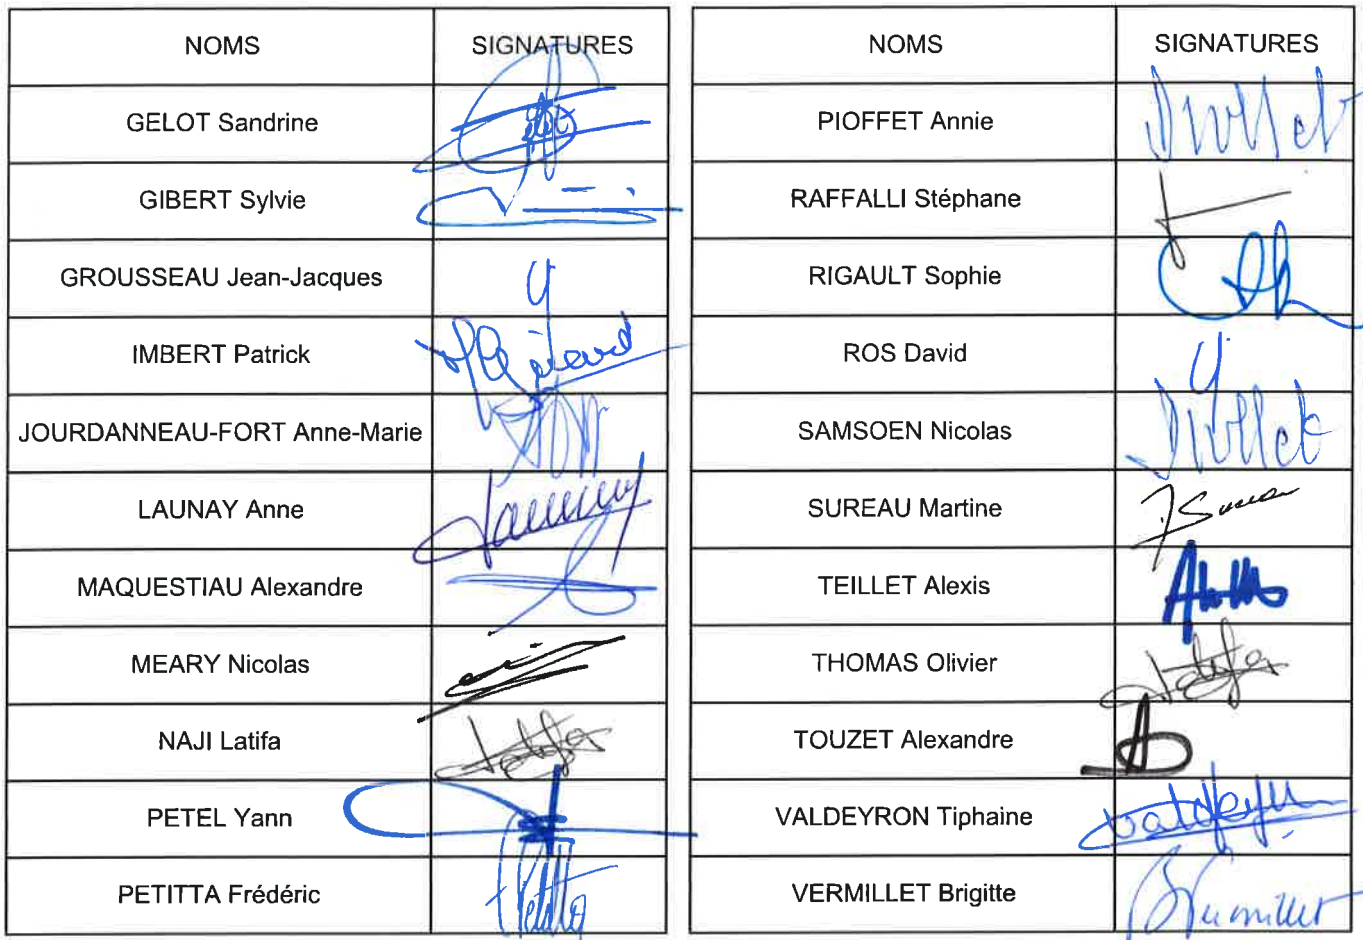 NOMS SIGNATURES
GELOT Sandrine
GIBERT Sylvie
GROUSSEAU Jean-Jacques
IMBERT Patrick
JOURDANNEAU-FORT Anne-Marie
LAUNAY Anne
MAQUESTIAU Alexandre
MEARY Nicolas
NAJI Latifa
PETEL Yann
PETITTA Frédéric
NOMS SIGNATURES
PIOFFET Annie
RAFFALLI Stéphane
RIGAULT Sophie
ROS David
SAMSOEN Nicolas
SUREAU Martine
TEILLET Alexis
THOMAS Olivier
TOUZET Alexandre
VALDEYRON Tiphaine
VERMILLET Brigitte